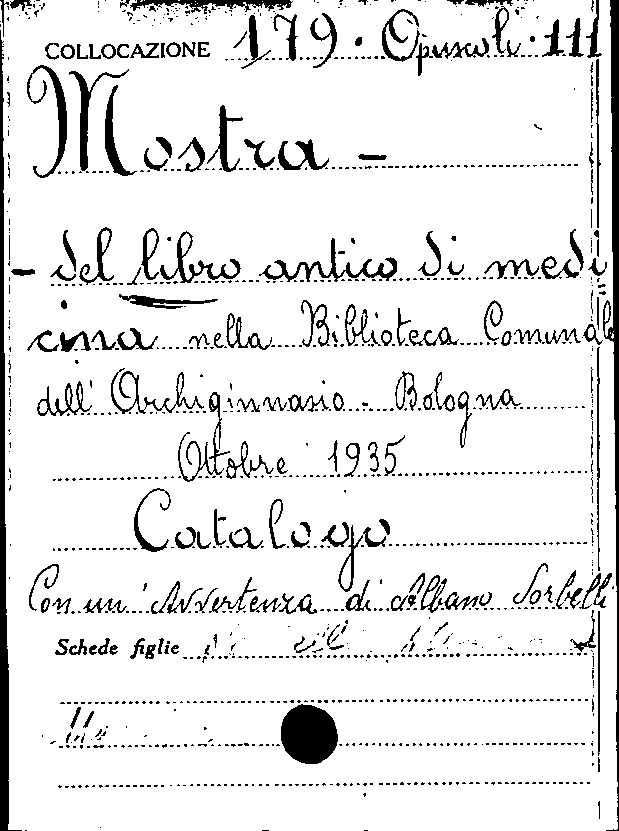 COLLOCAZIONE 179. Opuscoli. 111
Mostra -
- del libro antico di medi
cina nella Biblioteca Comunale
dell' Archiginnasio - Bologna
Ottobre 1935
Catalogo
Con un' Avvertenza di Albano Sorbelli
Schede figlie